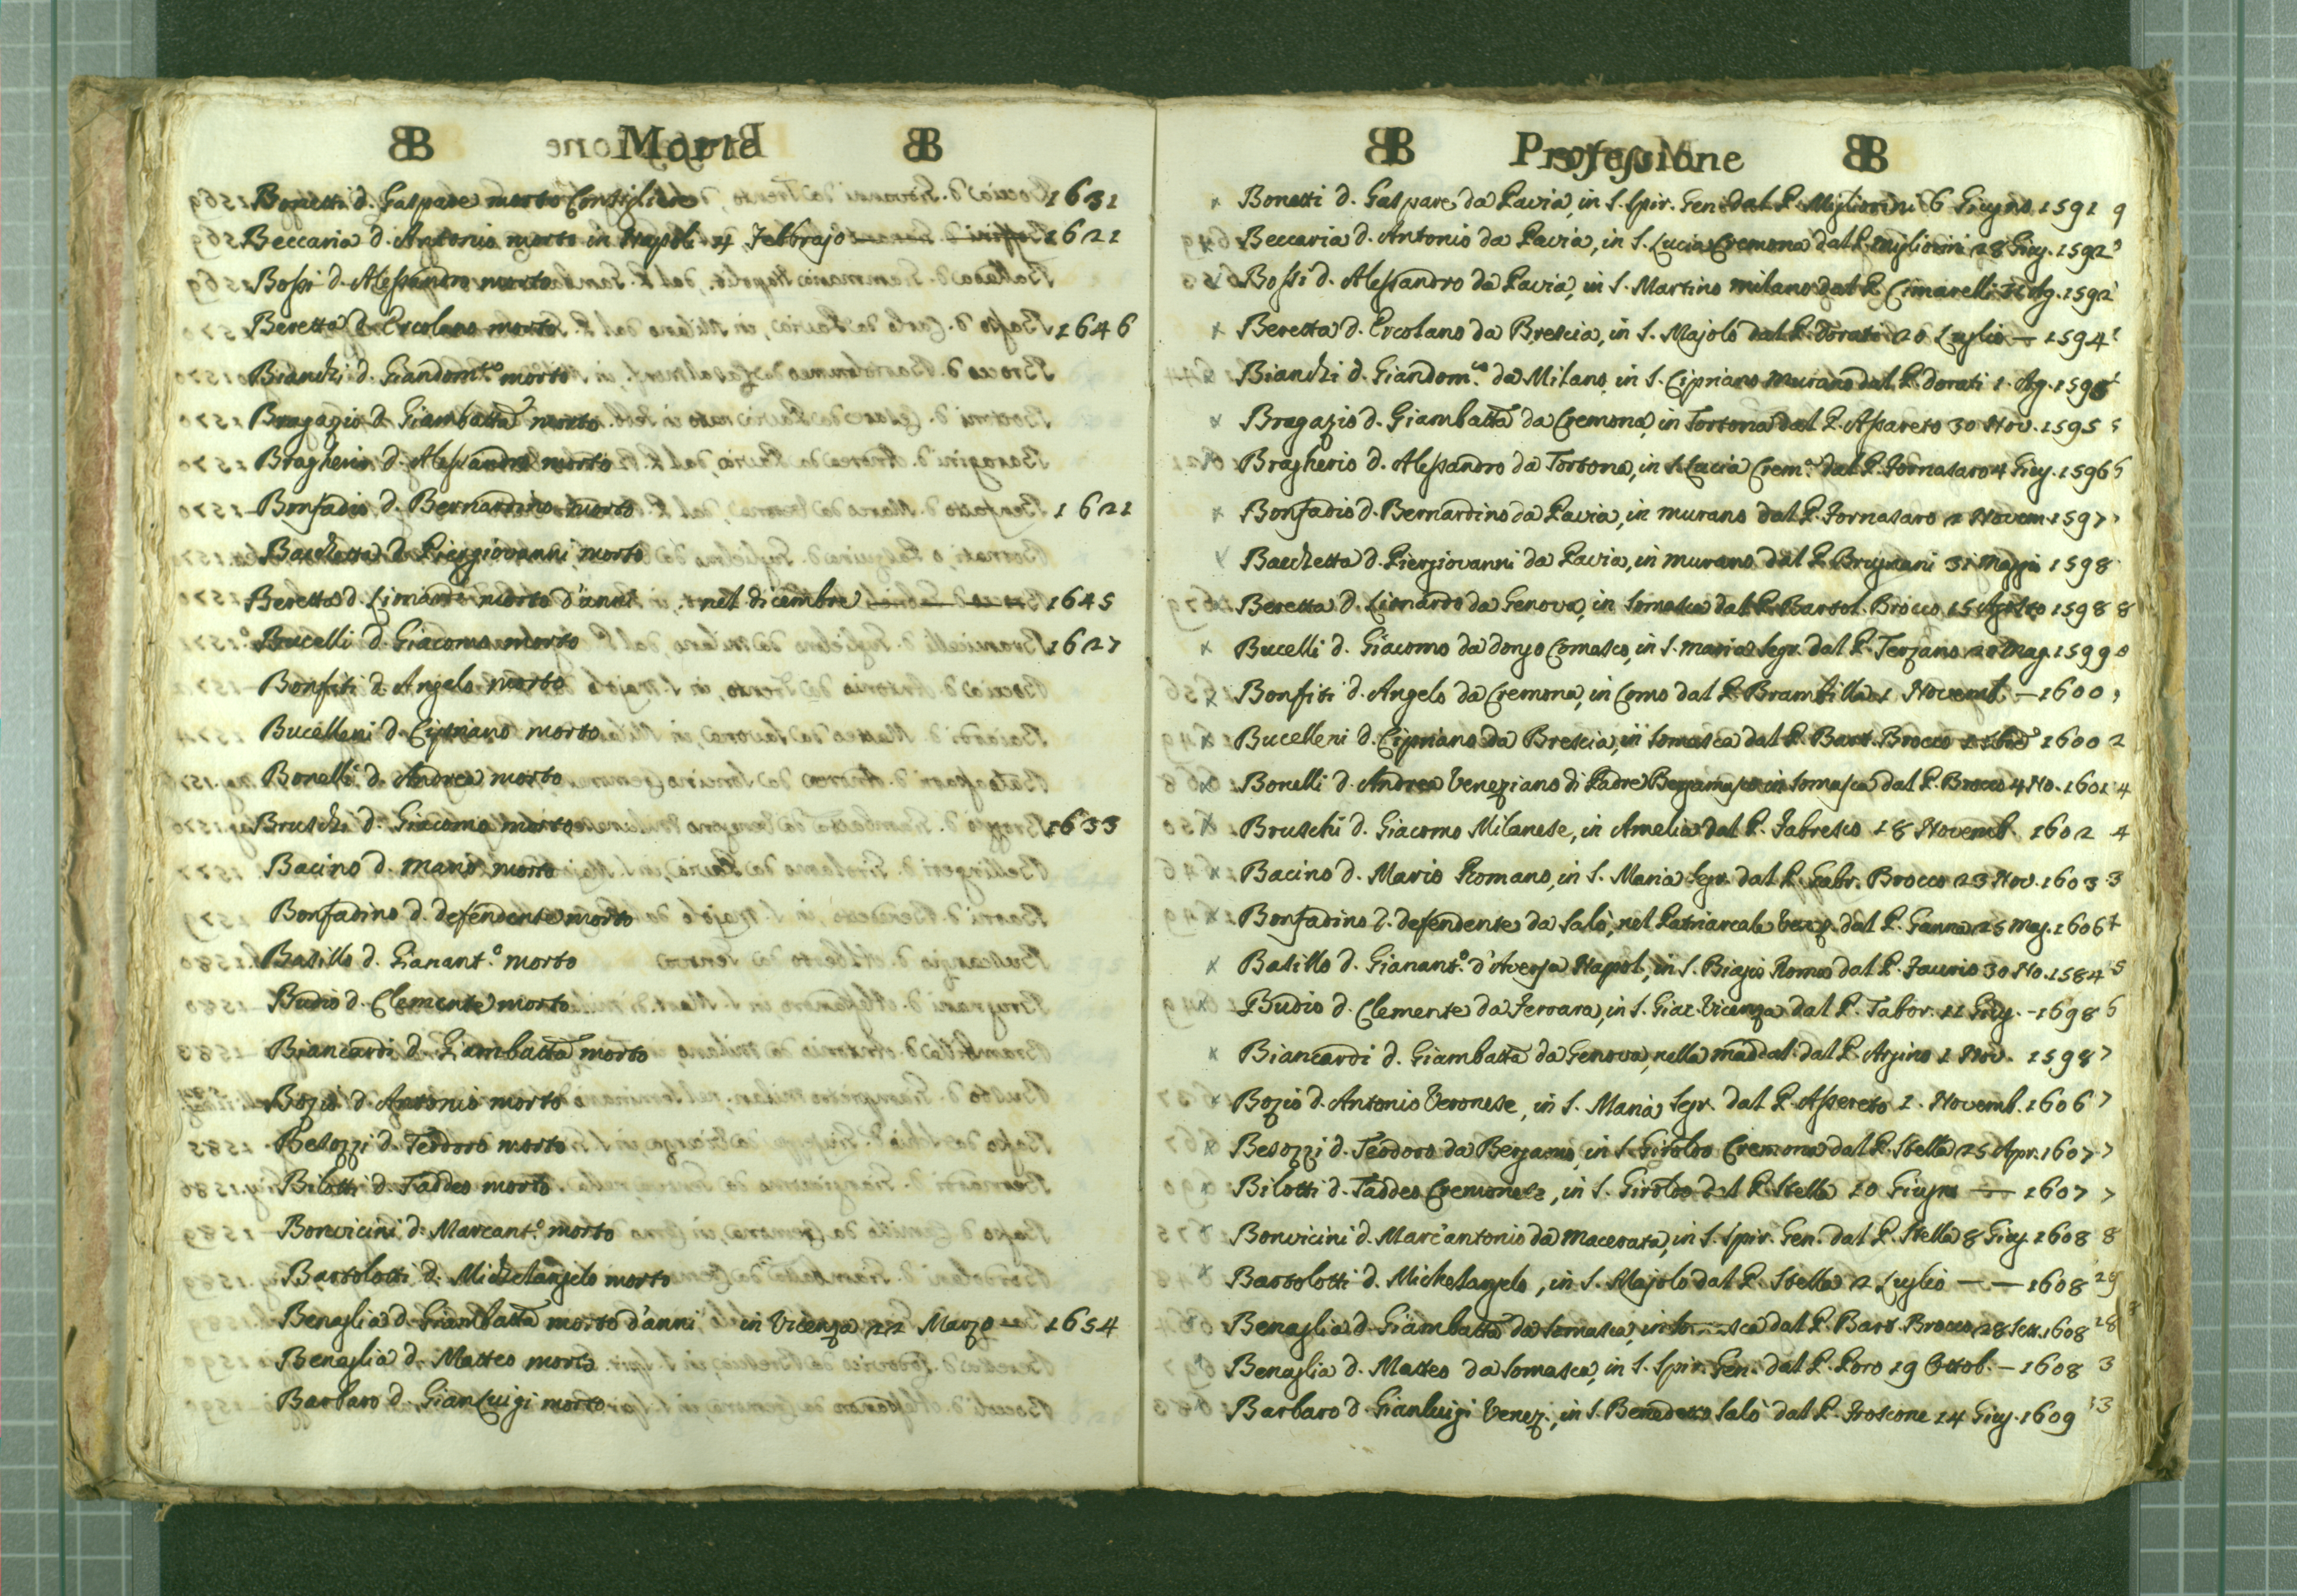 B Morte B
Bonetti d. Gaspare morto Consigliere 1631
Beccaria d. Antonio morto in Napoli 4 Febbrajo 1621
Bossi d. Alessandro morto
Beretta d. Ercolano morto 1646
Bianchi d. Giandom.co morto
Bragazio d. Giambatta morto
Bragherio d. Alessandro morto
Bonfadio d. Bernardino morto 1621
Bacchetta d. Piergiovanni morto
Beretta d. morto d'anni nel dicembre 1645
Bucelli d. Giacomo morto 1627
Bonfiti d. Angelo morto
Bucelleni d. Cipriano morto
Bonelli d. Andrea morto
Bruschi d. Giacomo morto 1633
Bacino d. Mario morto
Bonfadino d. defendente morto
Basillo d. Gianant.o morto
Budio d. Clemente morto
Biancardi d. Giambatta morto
Bozio d. Antonio morto
Besozzi d. Teodoro morto
Bilotti d. Taddeo morto
Bonvicini d. Marcant.o morto
Bartolotti d. Michelangelo morto
Benaglia d. Giambatta morto d'anni in Vicenza 22 Marzo — 1654
Benaglia d. Matteo morto
Barbaro d. Gianluigi morto
B Professione B
Bonetti d. Gaspare da Pavia, in S. Spir. Gen. dal P. Migliorini 6 Giugno 1591
Beccaria d. Antonio da Pavia, in S. Lucia Cremona dal P. Migliorini 28 Giug. 1592
Bossi d. Alessandro da Pavia, in S. Martino milano dal P. Cimarelli Ag. 1592
Beretta d. Ercolano da Brescia, in S. Majolo dal P. Dorato 20 Luglio — 1594
Bianchi d. Giandom.co da Milano, in S. Cipriano Murano dal P. Dorati 1. Ag. 1595
Bragazio d. Giambatta da Cremona, in Tortona dal P. Assareto 30 Nov. 1595
Bragherio d. Alessandro da Tortona, in S. Lucia Crem.a dal P. Fornasaro 4 Giug. 1596
Bonfadio d. Bernardino da Pavia, in murano dal P. Fornasaro 1 Novem. 1597
Bacchetta d. Piergiovanni da Pavia, in murano dal P. Brugnani 31 Maggio 1598
Beretta d. Lionardo da Genova, in Somasca dal P. Bartol. Brocco 15 Agosto 1598
Bucelli d. Giacomo da dongo Comasco, in S. maria Segr. dal P. Terzano 20 Mag. 1599
Bonfiti d. Angelo da Cremona, in Como dal P. Brambilla 1 Novemb. — 1600
Bucelleni d. Cipriano da Brescia, in Somasca dal P. Bart. Brocco 1600
Bonelli d. Andrea Veneziano di Padre Bergamasco in Somasca dal P. Brocco 4 No. 1601
Bruschi d. Giacomo Milanese, in Amelia dal P. Fabresco 18 Novemb. 1602
Bacino d. Mario Romano, in S. Maria Segr. dal P. Gabr. Brocco 23 Nov. 1603
Bonfadino d. defendente da Salò, nel Patriarcale Venez. dal P. Ganna 25 Mag. 1606
Basillo d. Gianant.o d'Aversa Napol., in S. Biagio Roma dal P. Faurio 30 No. 1584
Budio d. Clemente da Ferrara, in S. Giac. Vicenza dal P. Tabor. 11 Giug. - 1698
Biancardi d. Giambatta da Genova, nella maddal. dal P. Argino 1 Nov. 1598
Bozio d. Antonio Veronese, in S. Maria Segr. dal P. Assereto 1. Novemb. 1606
Besozzi d. Teodoro da Bergamo, in S. Giroldo Cremona dal P. Stella 25 Apr. 1607
Bilotti d. Taddeo Cremonese, in S. Giroldo dal P. Stella 10 Giugno — 1607
Bonvicini d. Marc'antonio da Macerata, in S. Spir. Gen. dal P. Stella 8 Giug. 1608
Bartolotti d. Michelangelo, in S. Majolo dal P. Stella 2 Luglio — — 1608
Benaglia d. Giambatta da Somasca, in dal P. Bart. Brocco 28 Sett. 1608
Benaglia d. Matteo da Somasca, in S. Spir. Gen. dal P. Poro 19 Ottob. — 1608
Barbaro d. Gianluigi Venez., in S. Benedetto Salò dal P. Froscone 14 Giug. 1609